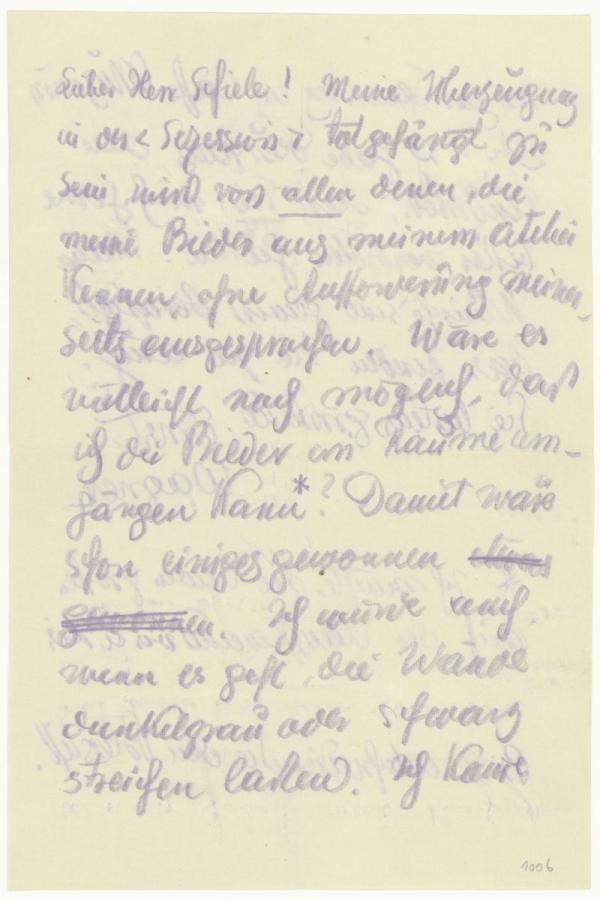 Lieber Herr Schiele! Meine Überzeugung
in der < Sezession > totgehängt zu
sein, wird von allen denen, die
meine Bilder aus meinem Atelier
kennen ohne Aufforderung meiner-
seits ausgesprochen. Wäre es
vielleicht noch möglich, daß
ich die Bilder im Raume um-
hängen kann*? Damit wäre
schon einiges gewonnen
Ich würde auch
wenn es geht, die Wände
dunkelgrau oder schwarz
streichen lassen. Ich käme
1006